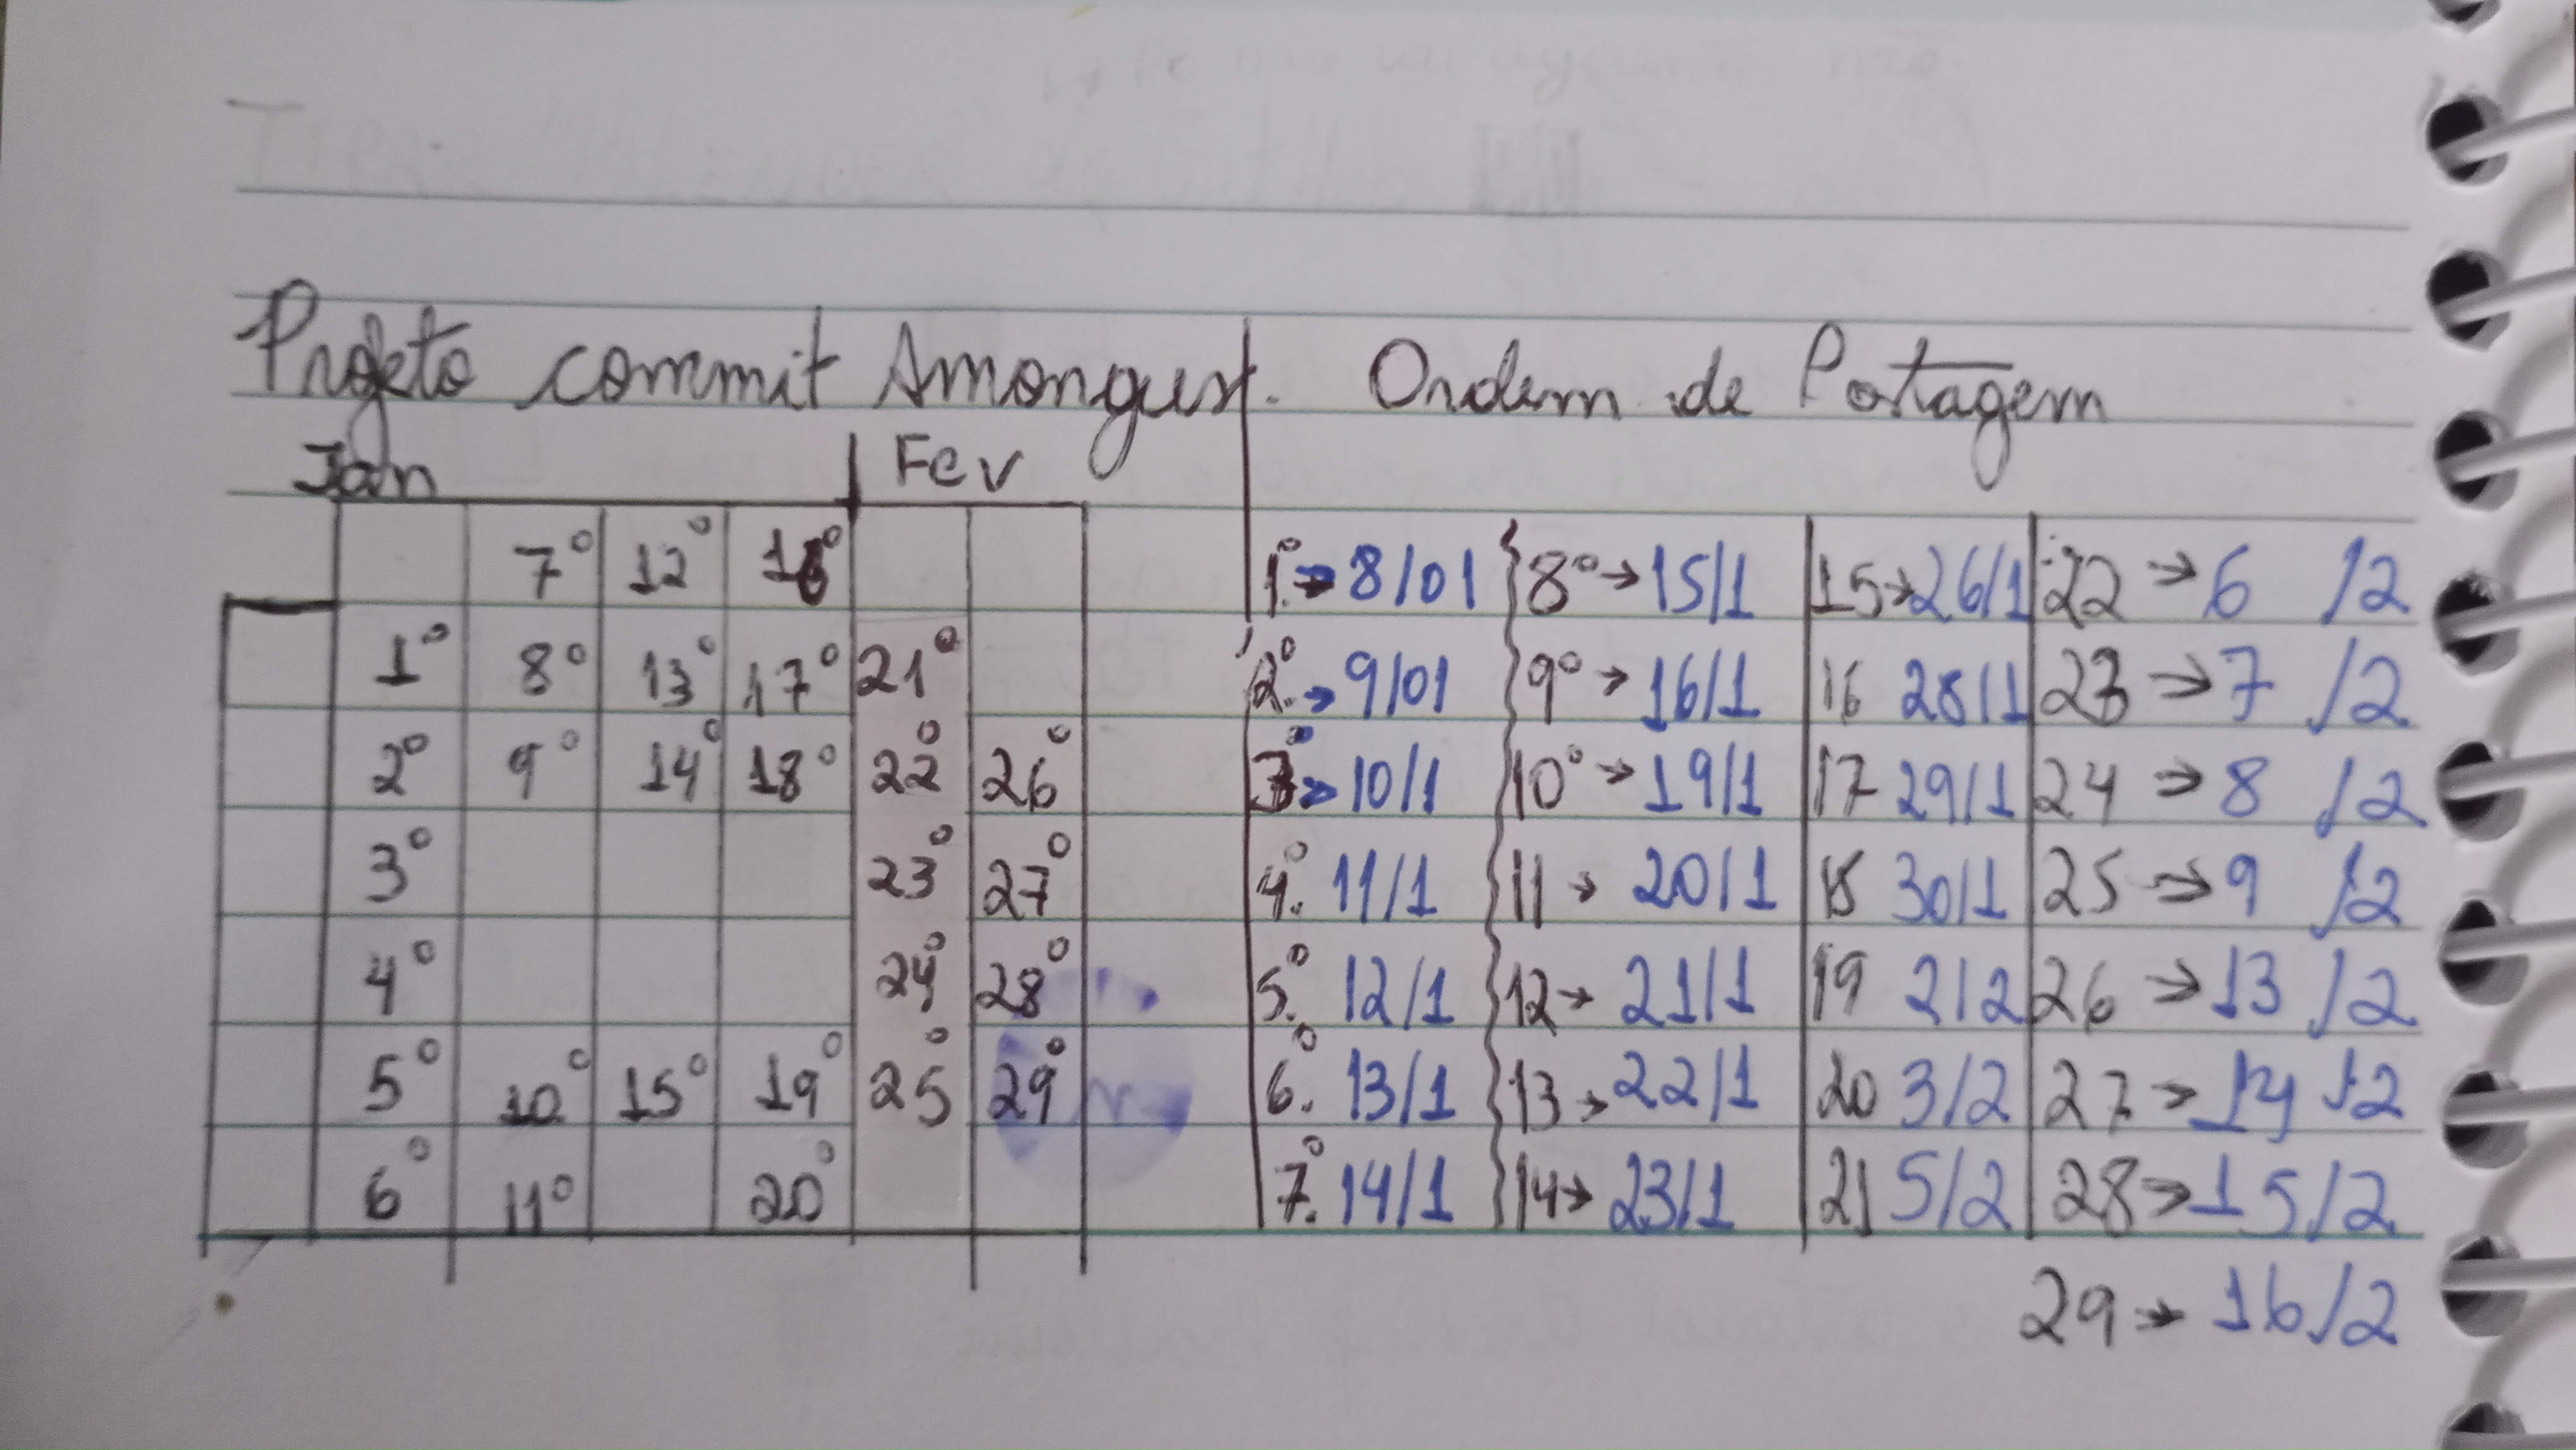 Projeto commit Amongus. Ordem de Postagem
Jan Fev
7° 12° 16°
1° 8° 13° 17° 21°
2° 9° 14° 18° 22° 26°
3° 23° 27°
4° 24° 28°
5° 10° 15° 19° 25° 29°
6° 11° 20°
1.° → 8/01 8° → 15/1 15 → 26/1 22 → 6 /2
2.° → 9/01 9° → 16/1 16 28/1 23 → 7 /2
3° → 10/1 10° → 19/1 17 29/1 24 → 8 /2
4.° 11/1 11 → 20/1 18 30/1 25 → 9 /2
5.° 12/1 12 → 21/1 19 2/2 26 → 13 /2
6.° 13/1 13 → 22/1 20 3/2 27 → 14 /2
7.° 14/1 14 → 23/1 21 5/2 28 → 15/2
29 → 16/2